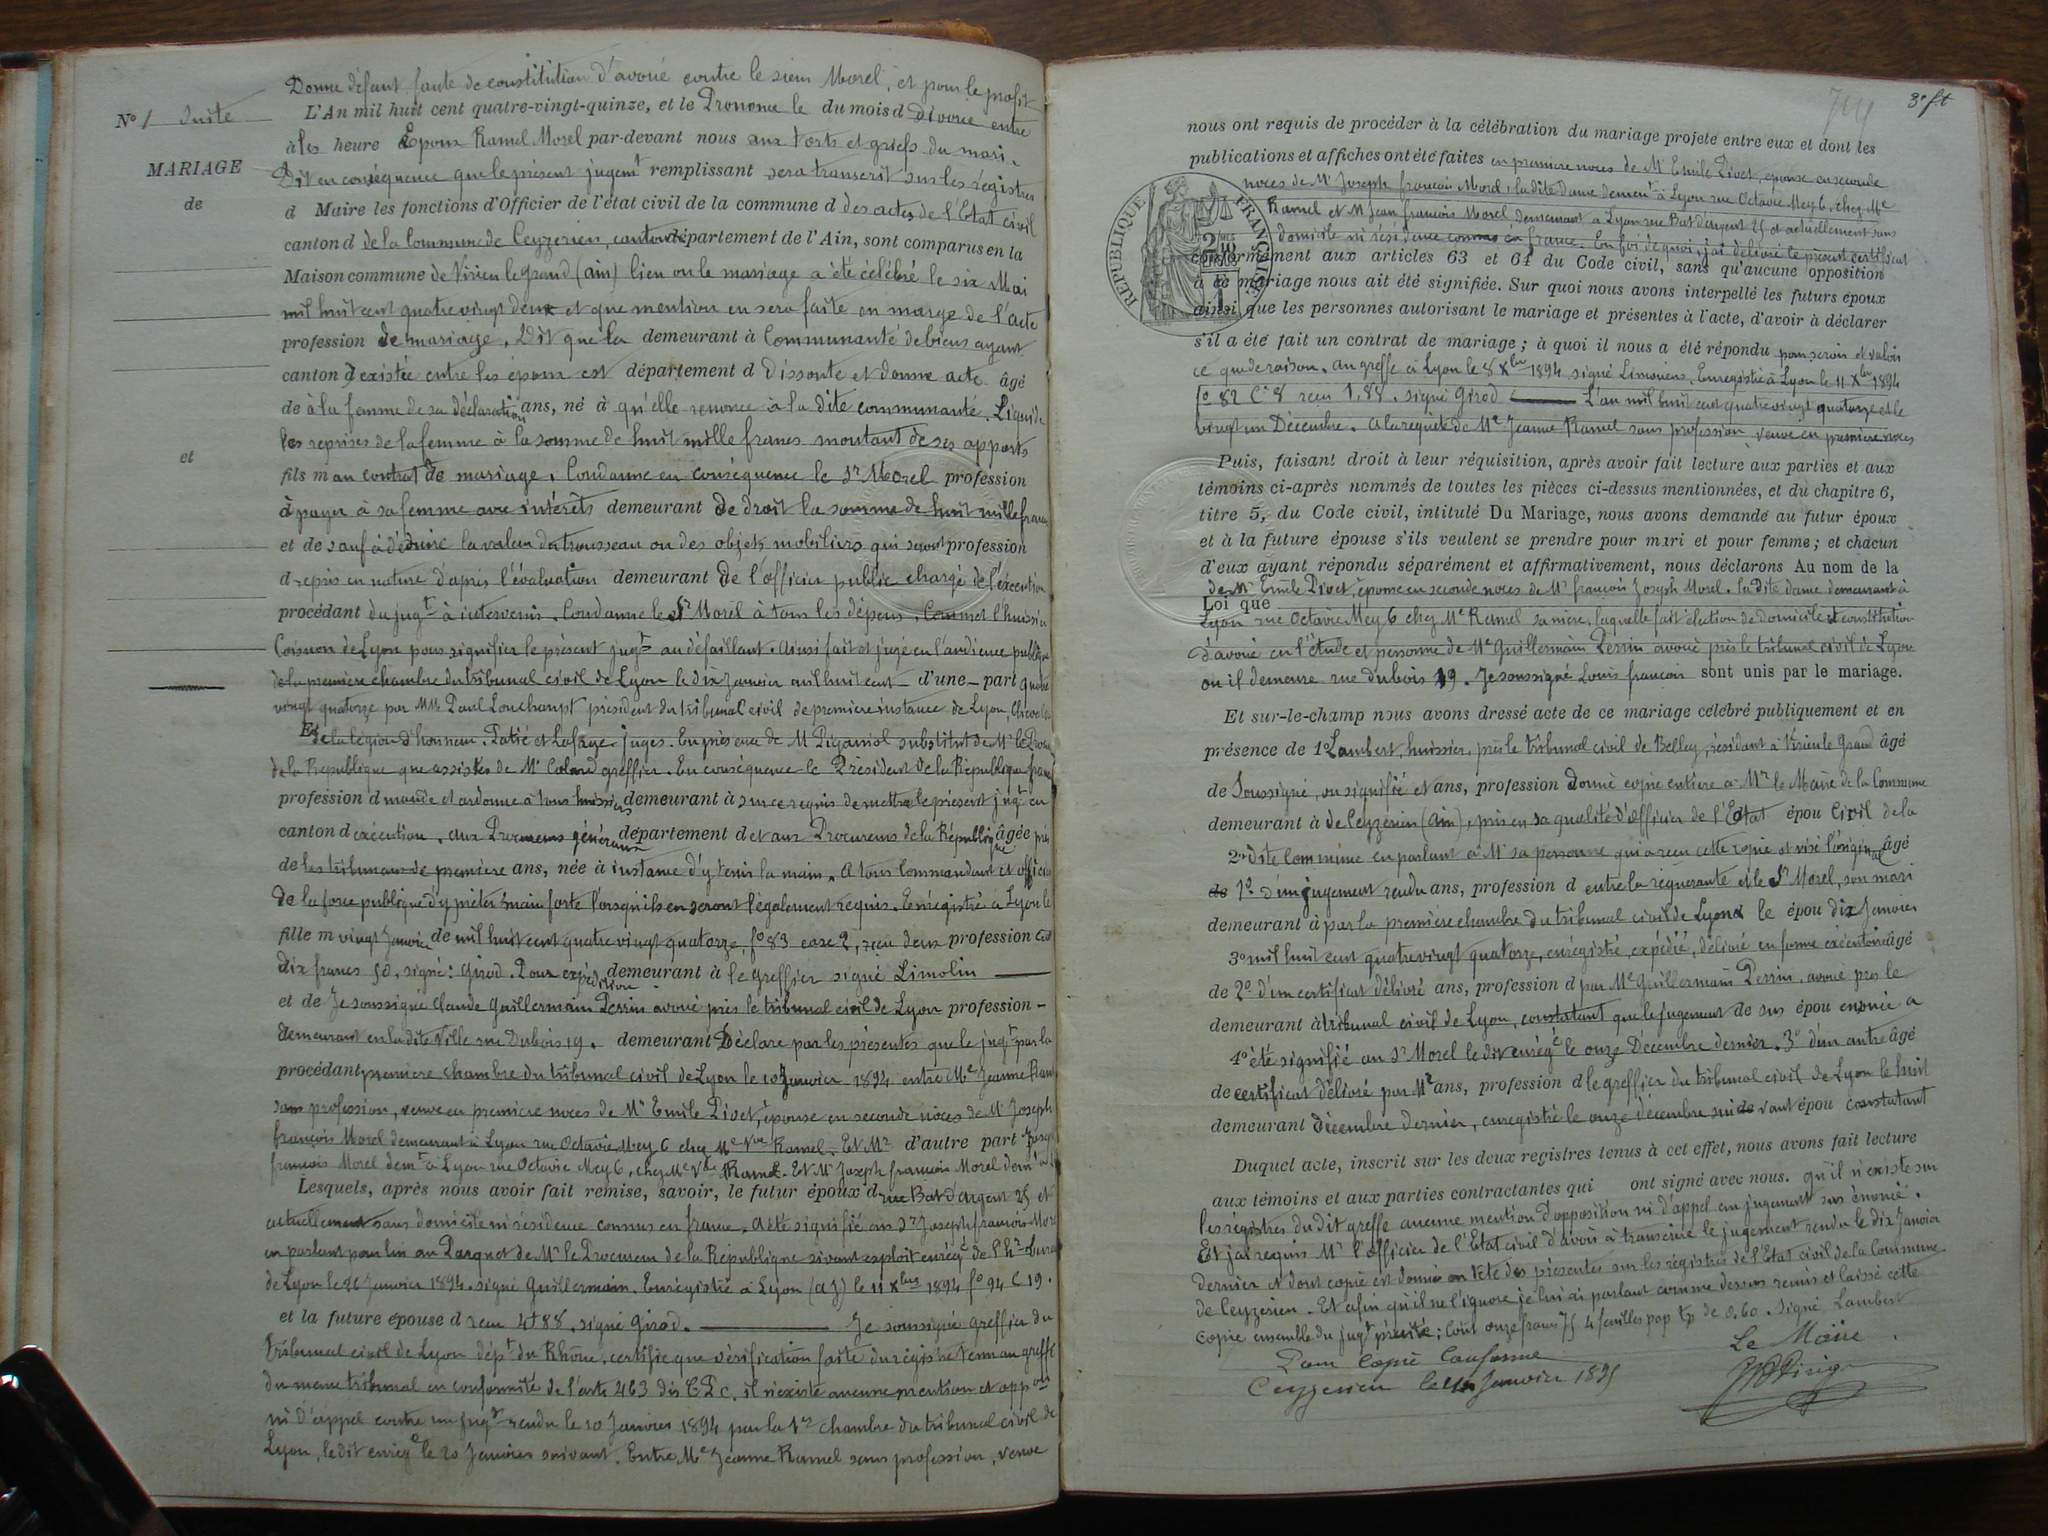 Donne défaut faute de constitution d'avoué contre le sieur Morel, et pour le profit
N° 1 Suite
L'An mil huit cent quatre-vingt-quinze, et le Prononce le du mois d divorce entre
à les heure Epoux Ramel Morel par-devant nous aux torts et griefs du mari.
MARIAGE
Dit en conséquence que le présent jugemt remplissant sera transcrit sur les régistres
de
d Maire les fonctions d'Officier de l'état civil de la commune d des actes de l'Etat civil
canton d de la Commune de Ceyzerieu, canton département de l'Ain, sont comparus en la
Maison commune de Virieu le Grand (ain) lieu ou le mariage a été célébré le six Mai
mil huit cent quatre vingt deux et que mention en sera faite en marge de l'acte
profession de mariage. Dit que la demeurant à Communauté de biens ayant
canton d existée entre les époux est département d dissoute et donne acte âgé
de à la femme de sa déclaration ans, né à qu'elle renonce à la dite communauté. Liquide
les reprises de la femme à la somme de huit mille francs montant de ses apports
et
fils m au contrat de mariage. Condamne en conséquence le Sr Morel profession
à payer à sa femme avec intérêts demeurant de droit la somme de huit mille francs
et de sauf à déduire la valeur du trousseau ou des objets mobiliers qui seront profession
d repris en nature d'après l'évaluation demeurant de l'officier public chargé de l'éxécution
procédant du jugt à intervenir. Condamne le Sr Morel à tous les dépens. Commet l'huissier
Coisnon de Lyon pour signifier le présent jugt au défaillant. Ainsi fait et jugé en l'audience publique
de la première chambre du tribunal civil de Lyon le dix Janvier mil huit cent d'une part quatre
vingt quatorze par MM Paul Lonchampt président du tribunal civil de premiere instance de Lyon,
Et de la légion d'honneur. Patié et Lafaye juges. En présence de M Piganiol substitut de Mr le Proc
de la République que assistés de Mr Coland greffier. En conséquence le Président de la République
profession d mande et ordonne à tous huissiers demeurant à sur ce requis de mettre le présent jugt en
canton d exécution. Aux Procureurs généraux département d et aux Procureurs de la République âgée près
de les tribunaux de première ans, née à instance d'y tenir la main. A tous Commandants et officiers
de la force publique d'y prêter main forte lorsqu'ils en seront légalement requis. Enrégistré à Lyon le
fille m vingt Janvier de mil huit cent quatre vingt quatorze, fo 83 case 2, reçu deux profession cent
dix francs 50. signé: Girod. Pour expédition demeurant à le greffier signé Limolin
et de Je soussigné Claude Guillermain Perrin avoué près le tribunal civil de Lyon profession
demeurant en la dite Ville rue Dubois 19. demeurant Déclare par les présentes que le jugt par la
procédant premiere chambre du tribunal civil de Lyon le 10 Janvier 1894 entre Me Jeanne Ramel
sans profession, veuve en premiere noces de Mr Emile Pivet, épouse en seconde noces de Mr Joseph
françois Morel demeurant à Lyon rue Octavie Mey 6 chez Me Vve Ramel. Et Mr d'autre part Joseph
francois Morel demt à Lyon rue Octavie Mey 6, chez Me Vve Ramel. Et Mr Joseph francois Morel demt à
Lesquels, après nous avoir fait remise, savoir, le futur époux d rue Bat d'argent 25 et
actuellement sans domicile ni résidence connus en france. A été signifié au Sr Joseph francois Morel
en parlant pour lui au Parquet de Mr le Procureur de la République suivant exploit enrégé de
de Lyon le 26 Janvier 1894. signé Guillermain. Enrégistré à Lyon (aj) le 11 Xbre 1894 fo 94 C 19.
et la future épouse d reçu 4f 88. signé Girod. Je soussigné greffier du
tribunal civil de Lyon dépt du Rhône, certifie que vérification faite du régistre tenu au greffe
du meme tribunal en conformité de l'arte 463 du C Pc, il n'existe aucune mention et oppon
ni d'appel contre un jugt rendu le 10 Janvier 1894 par la 1re chambre du tribunal civil de
Lyon, le dit enrégé le 20 Janvier suivant. Entre Me Jeanne Ramel sans profession, veuve
3e ft
nous ont requis de procéder à la célébration du mariage projeté entre eux et dont les
publications et affiches ont été faites en premiere noces de Mr Emile Pivet, épouse en seconde
noces de Mr Joseph francois Morel, la dite dame demeurt à Lyon rue Octavie Mey 6, chez Me
Ramel et M Jean francois Morel demeurant à Lyon rue Bat d'argent 25 et actuellement sans
domicile ni résidence connus en france. En foi de quoi j'ai délivré le present certificat
RÉPUBLIQUE FRANÇAISE
conformément aux articles 63 et 64 du Code civil, sans qu'aucune opposition
à ce mariage nous ait été signifiée. Sur quoi nous avons interpellé les futurs époux
ainsi que les personnes autorisant le mariage et présentes à l'acte, d'avoir à déclarer
s'il a été fait un contrat de mariage; à quoi il nous a été répondu pour servir et valoir
ce que de raison. Au greffe à Lyon le 8 Xbre 1894 signé Limousin. Enregistré à Lyon le 11 Xbre 1894
fo 82 Ce 8 reçu 1,88. signé Girod L'an mil huit cent quatre vingt quatorze et le
vingt un Décembre. A la requête de Me Jeanne Ramel sans profession, veuve en premiere noces
Puis, faisant droit à leur réquisition, après avoir fait lecture aux parties et aux
témoins ci-après nommés de toutes les pièces ci-dessus mentionnées, et du chapitre 6,
titre 5, du Code civil, intitulé Du Mariage, nous avons demandé au futur époux
et à la future épouse s'ils veulent se prendre pour mari et pour femme; et chacun
d'eux ayant répondu séparément et affirmativement, nous déclarons Au nom de la
de Mr Emile Pivet, épouse en seconde noces de Mr françois Joseph Morel. la dite dame demeurant à
Loi que
Lyon rue Octavie Mey 6 chez Me Ramel sa mère, laquelle fait élection de domicile et constitution
d'avoué en l'étude et personne de Me Guillermain Perrin avoué près le tribunal civil de Lyon
ou il demeure rue Dubois 19. Je soussigné Louis françois sont unis par le mariage.
Et sur-le-champ nous avons dressé acte de ce mariage célébré publiquement et en
présence de 1o Lambert, huissier, près le tribunal civil de Belley, résidant à Virieu le Grand âgé
de Soussigné, ou signifié et ans, profession donné copie entiere à Mr le Maire de la Commune
demeurant à de Ceyzerieu (ain), pris en sa qualité d'officier de l'Etat épou Civil de la
2o dite Commune en parlant à Mr sa personne qui a reçu cette copie et visé l'original âgé
de 1o. D'un jugement rendu ans, profession d entre la requerante et le Sr Morel, son mari
demeurant à par la première chambre du tribunal civil de Lyon le épou dix Janvier
3o mil huit cent quatre vingt quatorze, enrégistré, expédié, délivré en forme exécutoire âgé
de 2o. d'un certificat délivré ans, profession d par Me Guillermain Perrin, avoué près le
demeurant à tribunal civil de Lyon, constatant que le jugement de sus épou énoncé a
4o été signifié au Sr Morel le dit enrége le onze Décembre dernier. 3o d'un autre âgé
de certificat délivré par Mr ans, profession d le greffier du tribunal civil de Lyon le huit
demeurant décembre dernier, enregistré le onze décembre suivant épou constatant
Duquel acte, inscrit sur les deux registres tenus à cet effet, nous avons fait lecture
aux témoins et aux parties contractantes qui ont signé avec nous. qu'il n'existe sur
les registres du dit greffe aucune mention d'opposition ni d'appel au jugement sus énoncé.
Et j'ai requis Mr l'officier de l'Etat civil d'avoir à transcrire le jugement rendu le dix Janvier
dernier et dont copie est donnée en tête des présentes sur les régistres de l'Etat civil de la Commune
de Ceyzerieu. Et afin qu'il ne l'ignore je lui ai parlant comme dessus remis et laissé cette
copie ensemble du jugt précité; Coût onze francs 75 4 feuilles pap tp de 0.60. Signé Lambert
Pour Copie Conforme
Le Maire.
Ceyzerieu le Janvier 1895